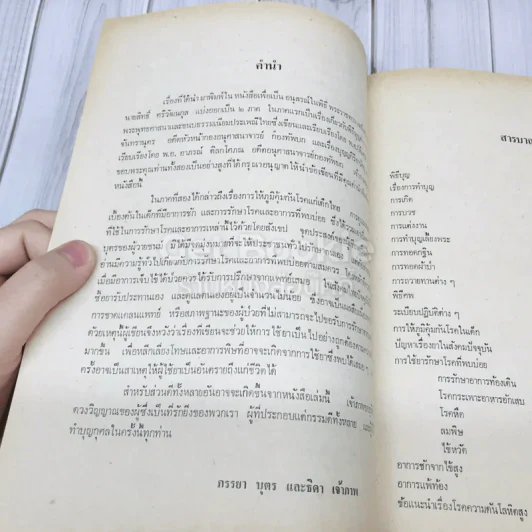 คำนำ
เรื่องที่ได้นำมาพิมพ์ใน หนังสือเพื่อเป็น อนุสรณ์ในพิธี
นายสิทธิ์ ศรีวัฒนกุล แบ่งออกเป็น ๒ ภาค ในภาคแรกเป็นเรื่องเกี่ยวกับ
พระพุทธศาสนาและขนบธรรมเนียมประเพณีไทยซึ่งเขียนและเรียบเรียงโดย
จันทรานุตร อดีตหัวหน้ากองอนุศาสนาจารย์ กองทัพบก และเรื่อง
เรียบเรียงโดย พ.อ. อาภรณ์ ศิลกโศภณ อดีตอนุศาสนาจารย์กองทัพบก
ขอบพระคุณท่านทั้งสองเป็นอย่างสูงที่ได้กรุณาอนุญาตให้นำข้อเขียน
หนังสือนี้
ในภาคที่สองได้กล่าวถึงเรื่องการให้ภูมิคุ้มกันโรคแก่เด็กไทย
เบื้องต้นในเด็กที่มีอาการชัก และการรักษาโรคและอาการที่พบบ่อย
ที่ใช้ในการรักษาโรคและอาการเหล่านี้ไว้ด้วยโดยสังเขป จุดประสงค์
บุตรของผู้วายชนม์ มิได้มีจุดมุ่งหมายที่จะให้ประชาชนทั่วไป
อ่านมีความรู้ทั่วไปเกี่ยวกับการรักษาโรคและอาการที่พบบ่อยตามสมควร
เมื่อมีอาการเจ็บไข้ได้ป่วยควรได้รับการปรึกษาจากแพทย์เสมอ ในสังคม
ซื้อยารับประทานเอง และดูแลตนเองอยู่เป็นจำนวนไม่น้อย ซึ่งอาจเป็น
การขาดแคลนแพทย์ หรือสภาพฐานะของผู้ป่วยที่ไม่สามารถจะไปขอรับการรักษา
ด้วยเหตุนี้ผู้เขียนจึงหวังว่าเรื่องที่เขียนจะช่วยให้การ ใช้ยาเป็น ไปอย่างถูกต้อง
มากขึ้น เพื่อหลีกเลี่ยงโทษและอาการพิษที่อาจจะเกิดจากการใช้ยาซึ่งพบได้เสมอ ๆ
ครั้งอาจเป็นสาเหตุให้ผู้ใช้ยาเป็นอันตรายถึงแก่ชีวิตได้
สำหรับส่วนดีทั้งหลายอันอาจจะเกิดขึ้นจากหนังสือเล่มนี้ เจ้าภาพ
ดวงวิญญาณของผู้ซึ่งเป็นที่รักยิ่งของพวกเรา ผู้ที่ประกอบแต่กรรมดีทั้งหลาย
ทำบุญกุศลในครั้งนี้ทุกท่าน
ภรรยา บุตร และธิดา เจ้าภาพ
พิธีบุญ
เรื่องการทำบุญ
การเกิด
การบวช
การแต่งงาน
การทำบุญเลี้ยงพระ
การทอดกฐิน
การทอดผ้าป่า
การถวายทานต่าง ๆ
พิธีศพ
ระเบียบปฏิบัติต่าง ๆ
การให้ภูมิคุ้มกันโรคในเด็ก
ปัญหาเรื่องยาในสังคมปัจจุบัน
การใช้ยารักษาโรคที่พบบ่อย
การรักษาอาการท้องเดิน
โรคกระเพาะอาหารอักเสบ
โรคหืด
ลมพิษ
ไข้หวัด
อาการชักจากไข้สูง
อาการแพ้ท้อง
ข้อแนะนำเรื่องโรคความดันโลหิตสูง